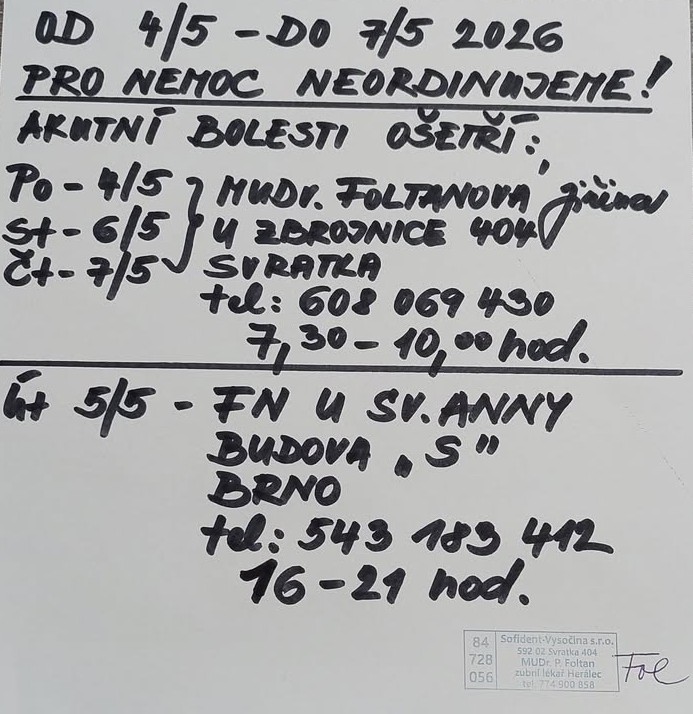 OD 4/5 - DO 7/5 2026
PRO NEMOC NEORDINUJEME!
AKUTNÍ BOLESTI OŠETŘÍ:
Po - 4/5 } MUDr. FOLTANOVA Jiřina
St - 6/5 U ZBROJNICE 404
Čt - 7/5 SVRATKA
tel: 608 069 430
7,30 - 10,00 hod.
Út 5/5 - FN U SV. ANNY
BUDOVA „S"
BRNO
tel: 543 183 412
16 - 21 hod.
84 728 056
Sofident-Vysočina s.r.o.
592 02 Svratka 404
MUDr. P. Foltan
zubní lékař Herálec
tel: 774 900 858